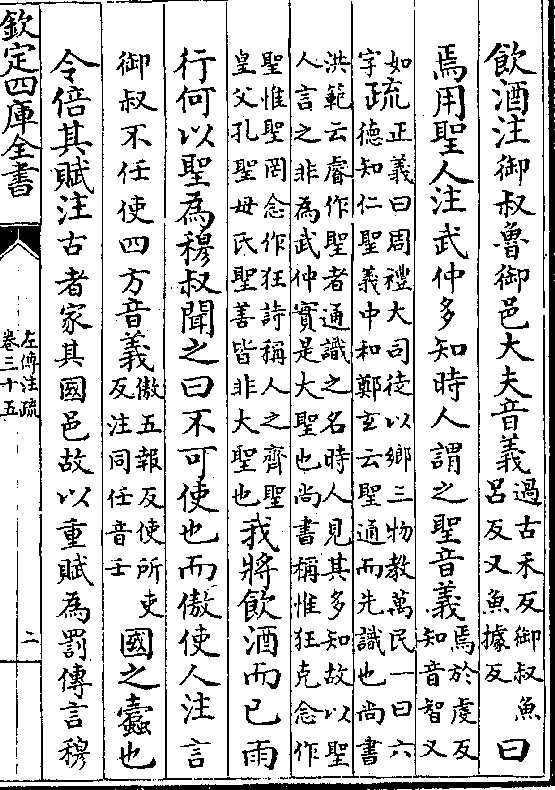 飲酒注御叔魯御邑大夫音義過古禾反御叔魚呂反又魚據反曰
焉用聖人注武仲多知時人謂之聖音義焉於虔反知音智又
如字疏正義曰周禮大司徒以鄉三物教萬民一曰六德知仁聖義中和鄭玄云聖通而先識也尚書
洪範云睿作聖者通識之名時人見其多知故以聖人言之非為武仲實是大聖也尚書稱惟狂克念作
聖惟聖罔念作狂詩稱人之齊聖皇父孔聖母氏聖善皆非大聖也我將飲酒而已雨
行何以聖為穆叔聞之曰不可使也而傲使人注言
御叔不任使四方音義傲五報反使所吏反注同任音壬國之蠹也
令倍其賦注古者家其國邑故以重賦為罰傳言穆
欽定四庫全書
左傳注疏
卷三十五
二